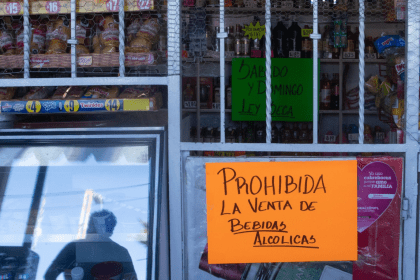 SABADO
Y DOMINGO
LEY SECA
PROHIBIDA
LA VENTA DE
BEBIDAS
ALCOLICAS
FAMILIA